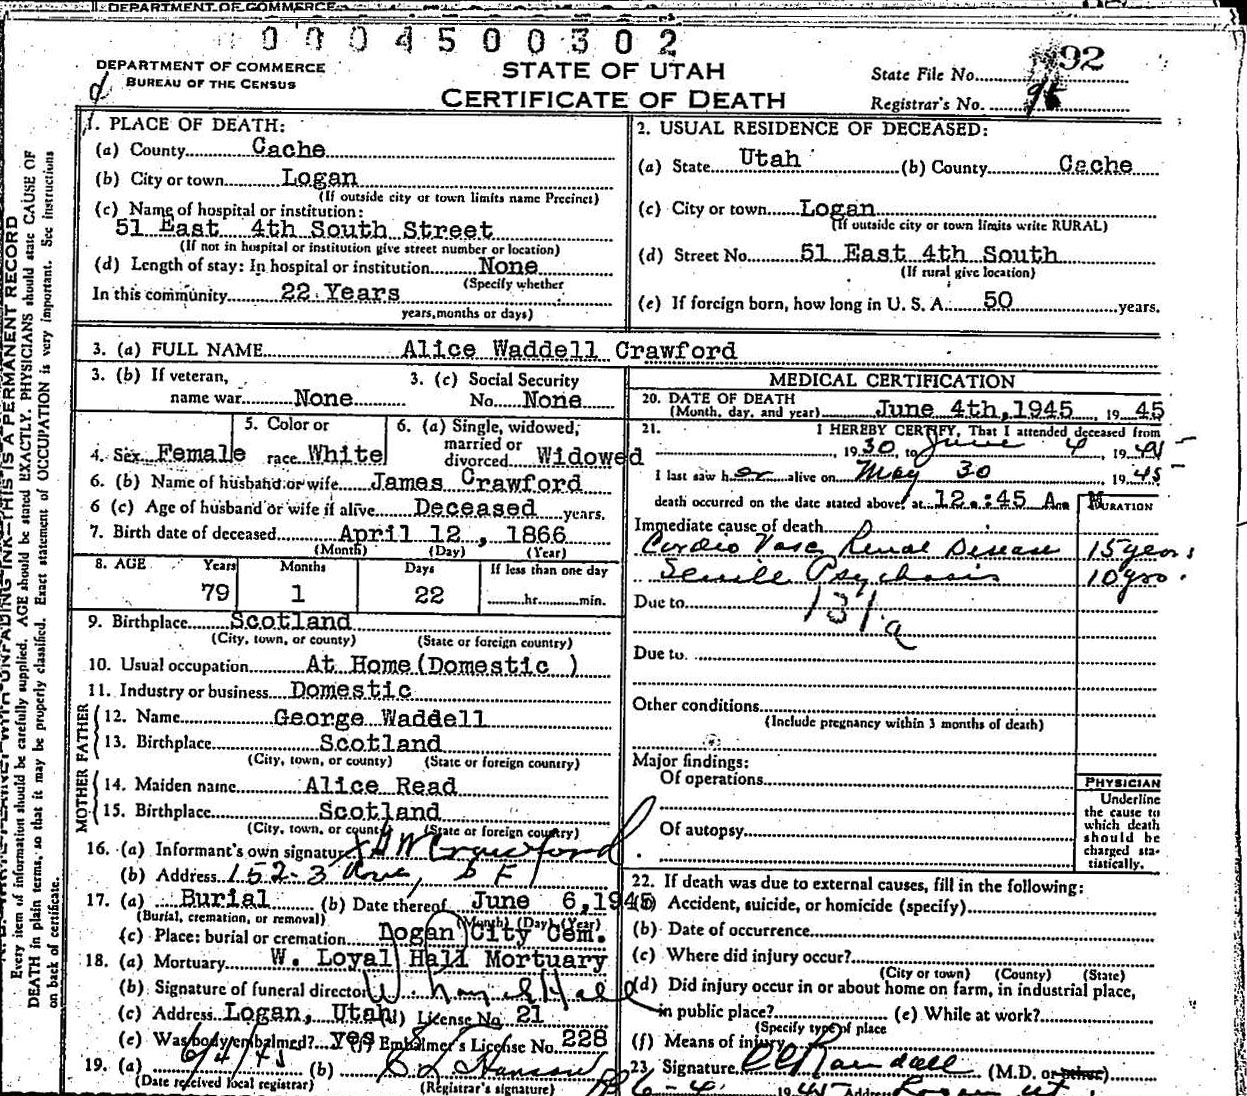 DEPARTMENT OF COMMERCE
0004500302
DEPARTMENT OF COMMERCE
BUREAU OF THE CENSUS
STATE OF UTAH
CERTIFICATE OF DEATH
State File No. 92
Registrar's No. 95
1. PLACE OF DEATH:
(a) County Cache
(b) City or town Logan
(If outside city or town limits name Precinct)
(c) Name of hospital or institution:
51 East 4th South Street
(If not in hospital or institution give street number or location)
(d) Length of stay: In hospital or institution None
(Specify whether
In this community 22 Years
years, months or days)
2. USUAL RESIDENCE OF DECEASED:
(a) State Utah (b) County Cache
(c) City or town Logan
(If outside city or town limits write RURAL)
(d) Street No. 51 East 4th South
(If rural give location)
(e) If foreign born, how long in U. S. A. 50 years.
3. (a) FULL NAME Alice Waddell Crawford
3. (b) If veteran,
name war None
3. (c) Social Security
No. None
4. Sex Female
5. Color or
race White
6. (a) Single, widowed,
married or
divorced Widowed
6. (b) Name of husband or wife James Crawford
6 (c) Age of husband or wife if alive Deceased years.
7. Birth date of deceased April 12, 1866
(Month) (Day) (Year)
8. AGE Years Months Days If less than one day
79 1 22 hr. min.
9. Birthplace Scotland
(City, town, or county) (State or foreign country)
10. Usual occupation At Home (Domestic )
11. Industry or business Domestic
FATHER
12. Name George Waddell
13. Birthplace Scotland
(City, town, or county) (State or foreign country)
MOTHER
14. Maiden name Alice Read
15. Birthplace Scotland
(City, town, or county) (State or foreign country)
16. (a) Informant's own signature Crawford
(b) Address 152-3 Ave,
17. (a) Burial (b) Date thereof June 6,1945
(Burial, cremation, or removal) (Month) (Day) (Year)
(c) Place: burial or cremation Logan City Cem.
18. (a) Mortuary W. Loyal Hall Mortuary
(b) Signature of funeral director W. Loyal Hall
(c) Address Logan, Utah (d) License No. 21
(e) Was body embalmed? yes (f) Embalmer's License No. 228
19. (a) 6/4/45 (b) Hansen
(Date received local registrar) (Registrar's signature)
MEDICAL CERTIFICATION
20. DATE OF DEATH
(Month, day, and year) June 4th,1945, 19 45
21. I HEREBY CERTIFY, That I attended deceased from
, 19 30, to June 4, 19 45
I last saw her alive on May 30 19 45
death occurred on the date stated above, at 12.:45 A.M
DURATION
Immediate cause of death
Cardio Vasc Renal Disease 15 years
Senile Psychosis 10 yrs.
Due to 131a
Due to
Other conditions
(Include pregnancy within 3 months of death)
Major findings:
Of operations
Of autopsy
PHYSICIAN
Underline
the cause to
which death
should be
charged sta-
tistically.
22. If death was due to external causes, fill in the following:
Accident, suicide, or homicide (specify)
(b) Date of occurrence
(c) Where did injury occur?
(City or town) (County) (State)
(d) Did injury occur in or about home on farm, in industrial place,
in public place? (e) While at work?
(Specify type of place
(f) Means of injury
23. Signature Randall (M.D. or other)
6-4 1945 Address Logan Ut
THIS IS A PERMANENT RECORD
Every item of information should be carefully supplied. AGE should be stated EXACTLY. PHYSICIANS should state CAUSE OF
DEATH in plain terms, so that it may be properly classified. Exact statement of OCCUPATION is very important. See instructions
on back of certificate.